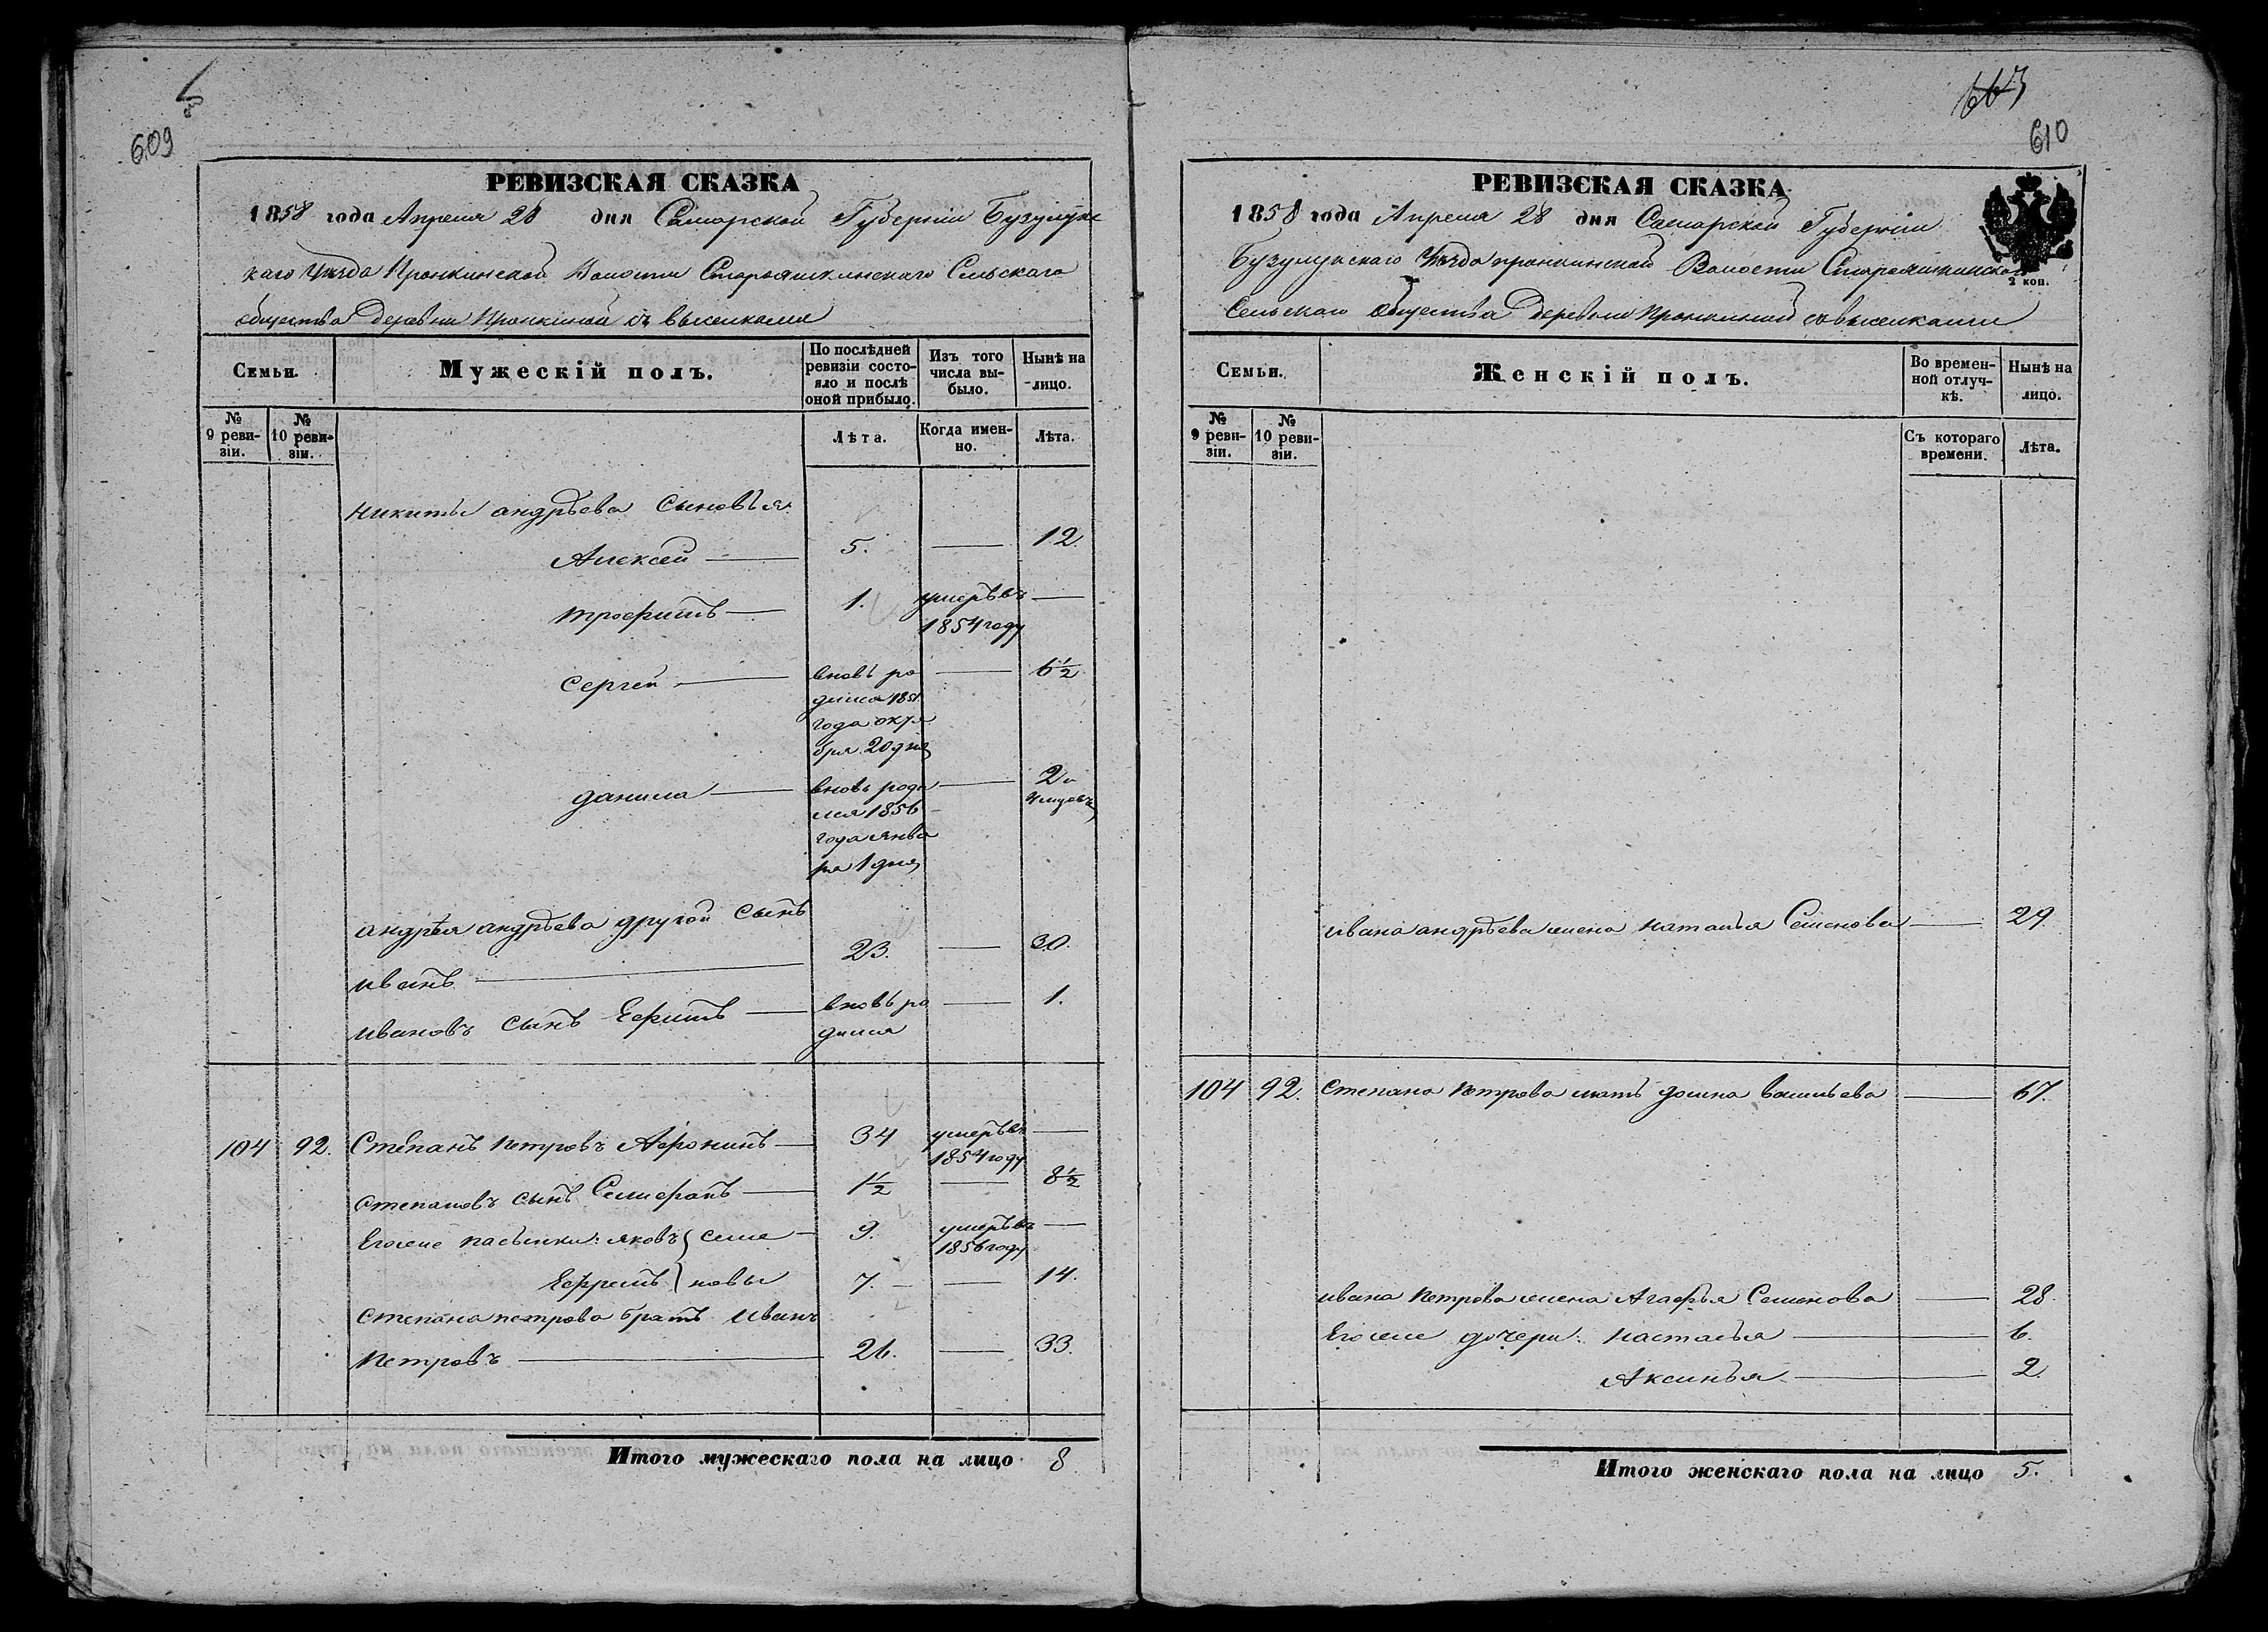 609
РЕВИЗСКАЯ СКАЗКА
1858 года Апреля 28 дня Самарской Губерніи Бузулукс
каго Уезда Пронкинской Волости Старояшкинскаго Сельскаго
общества деревни Пронкиной съ выселками
Семьи.
Мужескій полъ.
По послѣдней ревизіи состо-
яло и послѣ
оной прибыло.
Изъ того числа вы-
было.
Нынѣ на лицо.
№ 9 реви-
зіи.
№ 10 реви-
зіи.
Лѣта.
Когда имен-
но.
Лѣта.
Никиты андрѣева сыновья
Алексей 5. 12.
трофимъ 1. умеръ въ
1854 году
Сергей вновь ро 6 1/2
дился 1851
года октя
бря 20 дня
данила вновь роди 2 и
лся 1856 4 месяца
года Янва
ря 1 дня
андрѣя андрѣева другой сынъ
иванъ 23. 30.
ивановъ сынъ Ефимъ вновь ро 1.
дился
104 92. Степанъ петровъ Афонинъ 34 умеръ въ
1854 году
степановъ сынъ Селифанъ 1 1/2 8 1/2
Его же пасынки: яковъ семе 9. умеръ въ
1856 году
Ефремъ новы 7. 14.
степана петрова братъ иванъ
петровъ 26. 33.
Итого мужескаго пола на лицо 8
610
РЕВИЗСКАЯ СКАЗКА
1858 года Апреля 28 дня Самарской Губерніи
Бузулукскаго Уезда пронкинской Волости Старояшкинскаго
2 коп.
Сельскаго общества деревни Пронкиной съ выселками
Семьи.
Женскій полъ.
Во времен-
ной отлуч-
кѣ.
Нынѣ на лицо.
№ 9 реви-
зіи.
№ 10 реви-
зіи.
Съ котораго времени.
Лѣта.
ивана андрѣева жена наталья Семенова 29.
104 92. Степана петрова мать домна васильева 67.
ивана петрова жена Агафья Семенова 28.
Его же дочери: настасья 6.
Аксинья 2.
Итого женскаго пола на лицо 5.